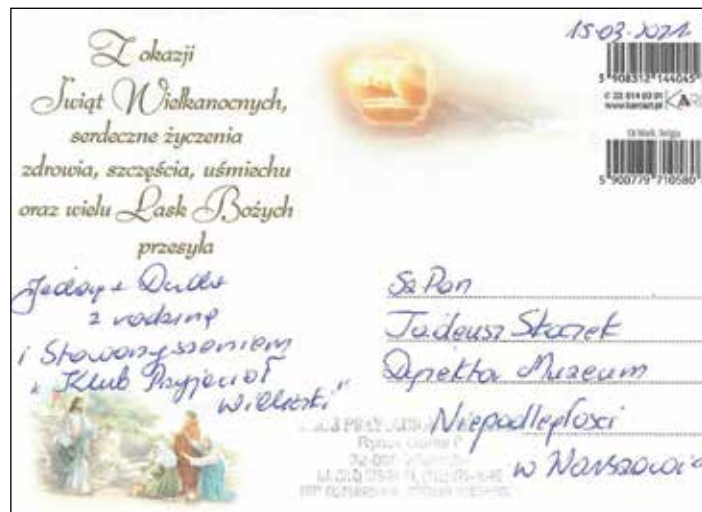 Z okazji
Świąt Wielkanocnych,
serdeczne życzenia
zdrowia, szczęścia, uśmiechu
oraz wielu Łask Bożych
przesyła
z rodziną
i Stowarzyszeniem
"Klub Przyjaciół
Wieliczki"
15-03-2021
5 908312 144045
www.karart.pl
5 900779 710580
Sz Pan
Tadeusz Skoczek
Dyrektor Muzeum
Niepodległości
w Warszawie